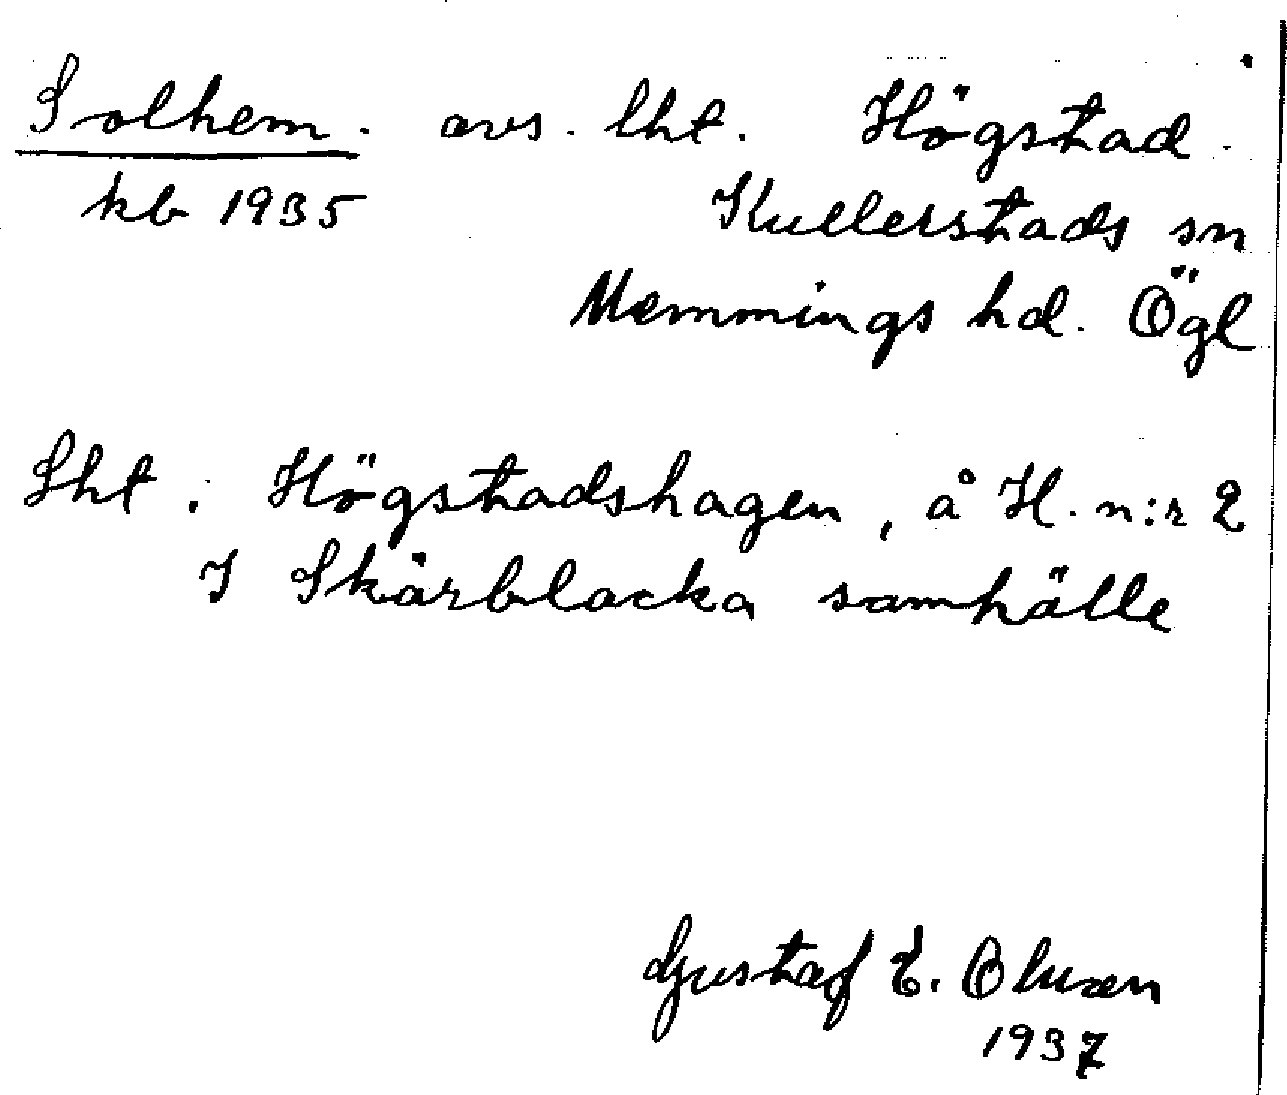 Solhem. avs. lht. Högstad.
kb 1935 Kullerstads sn
Memmings hd. Ögl
Lht. Högstadshagen, å H. n:r 2
I Skärblacka samhälle
Gustaf E.
1937